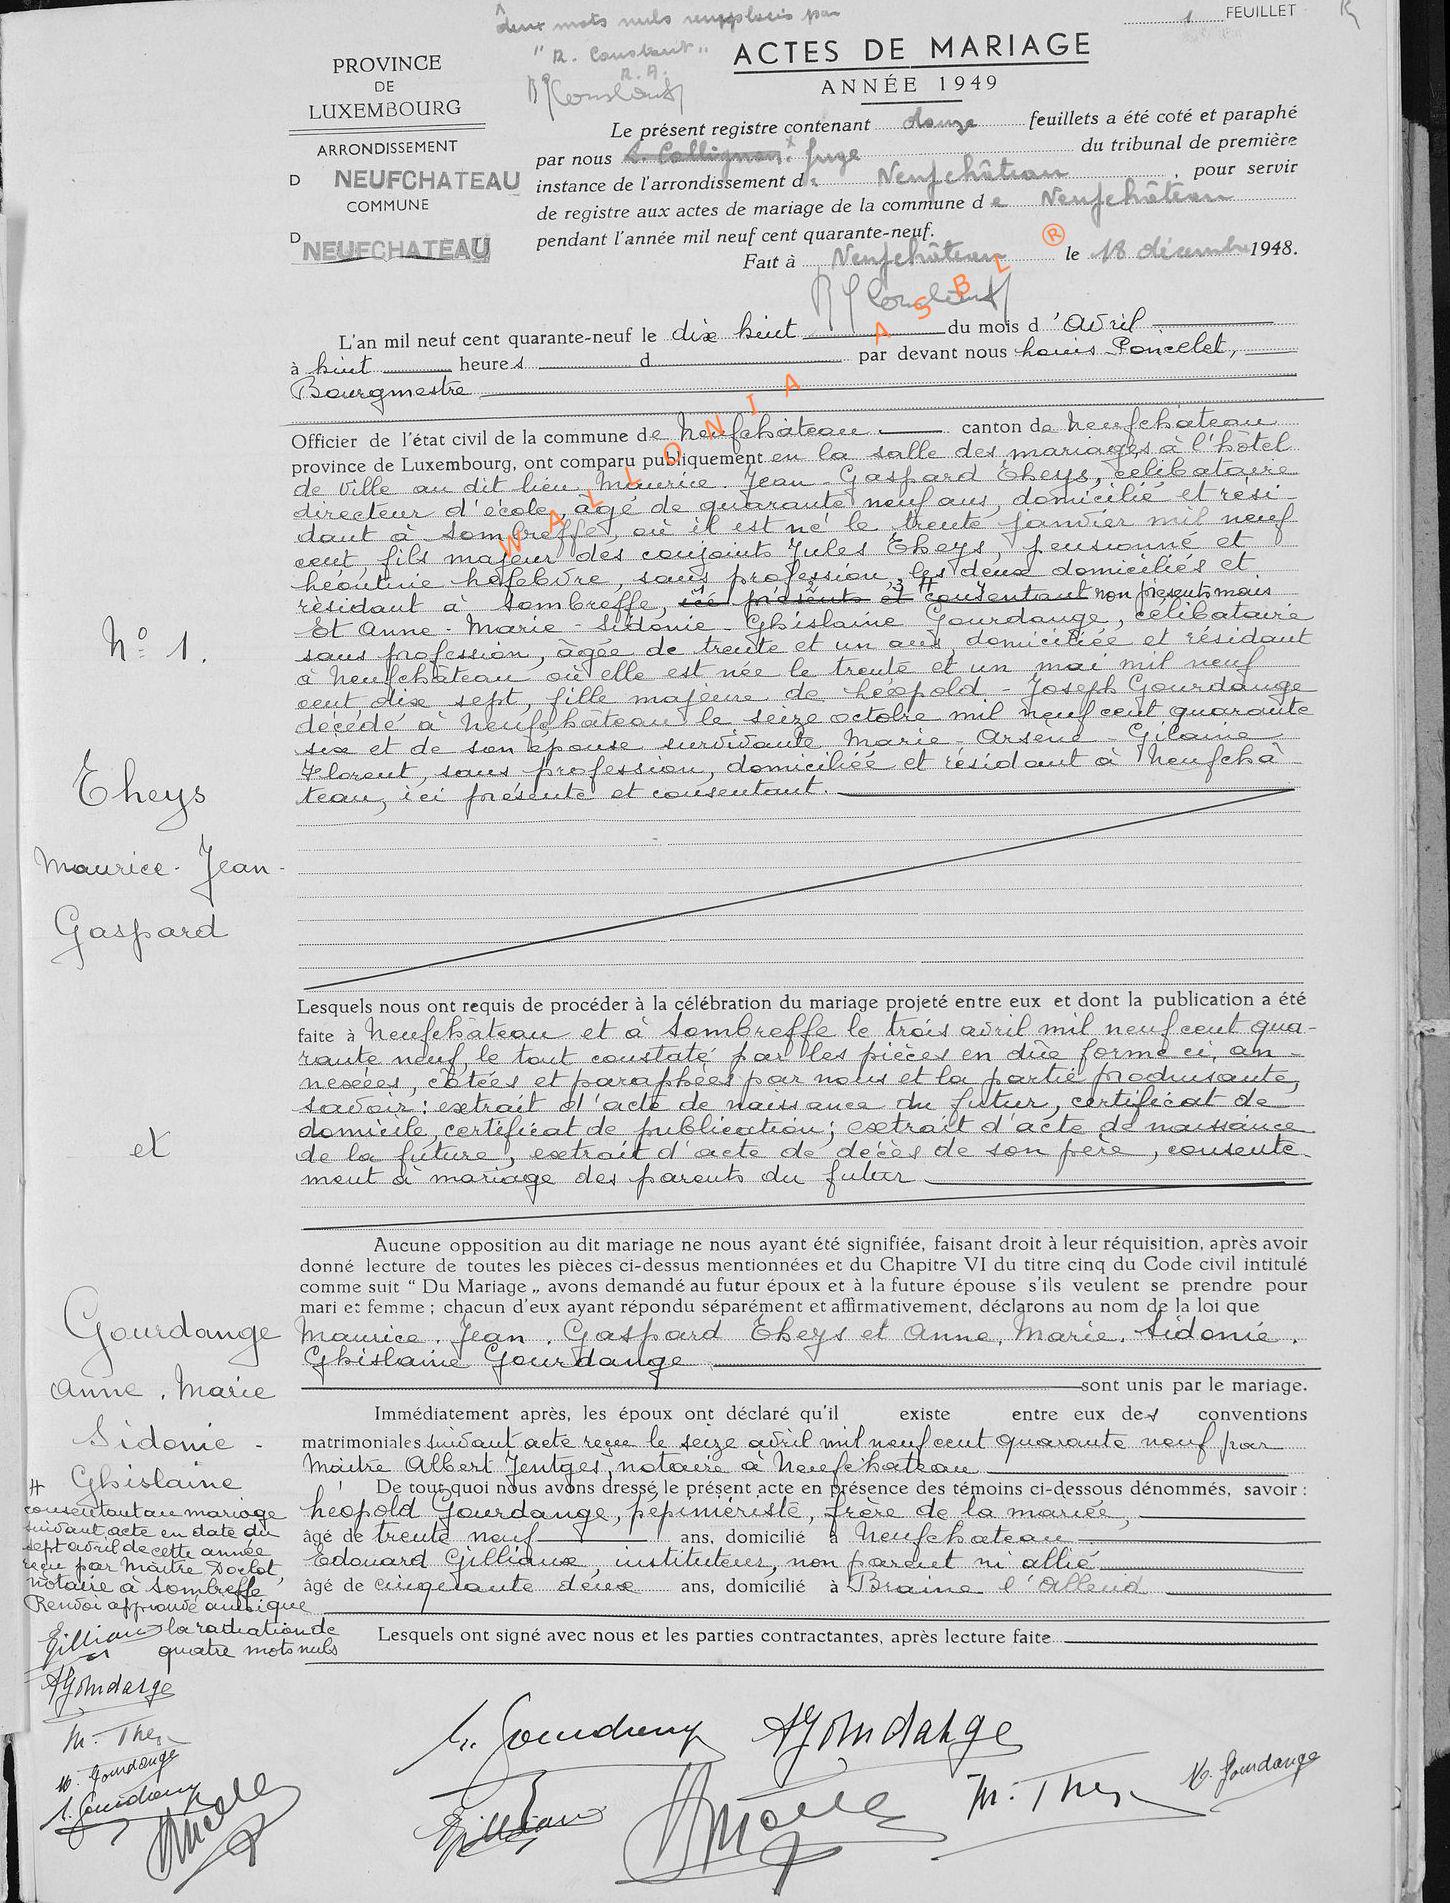 1 FEUILLET
deux mots nuls remplacés par
"R. Constant"
R. A.
PROVINCE
DE
LUXEMBOURG
ARRONDISSEMENT
D NEUFCHATEAU
COMMUNE
D NEUFCHATEAU
ACTES DE MARIAGE
ANNÉE 1949
Le présent registre contenant douze feuillets a été coté et paraphé
par nous juge du tribunal de première
instance de l'arrondissement de Neufchâteau, pour servir
de registre aux actes de mariage de la commune de Neufchâteau
pendant l'année mil neuf cent quarante-neuf.
Fait à Neufchâteau le 18 décembre 1948.
WALLONIA ASBL ®
L'an mil neuf cent quarante-neuf le dix huit du mois d'Avril
à huit heures d par devant nous Louis Poncelet,
Bourgmestre
Officier de l'état civil de la commune de Neufchâteau canton de Neufchâteau
province de Luxembourg, ont comparu publiquement en la salle des mariages à l'hôtel
de ville au dit lieu Maurice-Jean-Gaspard Theys, célibataire
directeur d'école, âgé de quarante neuf ans, domicilié et rési-
dant à Sombreffe, où il est né le trente janvier mil neuf
cent, fils majeur des conjoints Jules Theys, pensionné et
Léontine Lefebvre, sans profession, les deux domiciliés et
résidant à Sombreffe, ici présents et consentant non présents mais
Et Anne-Marie-Sidonie-Ghislaine Gourdange, célibataire
sans profession, âgée de trente et un ans, domiciliée et résidant
à Neufchâteau où elle est née le trente et un mai mil neuf
cent dix sept, fille majeure de Léopold-Joseph Gourdange
décédé à Neufchâteau le seize octobre mil neuf cent quarante
six et de son épouse survivante Marie-Arsene-Gilaine
Florent, sans profession, domiciliée et résidant à Neufchâ
teau, ici présente et consentant.
No 1.
Theys
Maurice-Jean-
Gaspard
et
Gourdange
Anne. Marie
Sidonie-
Ghislaine
Lesquels nous ont requis de procéder à la célébration du mariage projeté entre eux et dont la publication a été
faite à Neufchâteau et à Sombreffe le trois avril mil neuf cent qua-
rante neuf, le tout constaté par les pièces en dûe forme ci, an-
nexées, côtées et paraphées par nous et la partie produisante,
savoir : extrait d'acte de naissance du futur, certificat de
domicile, certificat de publication; extrait d'acte de naissance
de la future, extrait d'acte de décès de son père, consente-
ment à mariage des parents du futur
Aucune opposition au dit mariage ne nous ayant été signifiée, faisant droit à leur réquisition, après avoir
donné lecture de toutes les pièces ci-dessus mentionnées et du Chapitre VI du titre cinq du Code civil intitulé
comme suit " Du Mariage „ avons demandé au futur époux et à la future épouse s'ils veulent se prendre pour
mari et femme ; chacun d'eux ayant répondu séparément et affirmativement, déclarons au nom de la loi que
Maurice. Jean. Gaspard Theys et Anne, Marie. Sidonie.
Ghislaine Gourdange
sont unis par le mariage.
Immédiatement après, les époux ont déclaré qu'il existe entre eux des conventions
matrimoniales suivant acte reçu le seize avril mil neuf cent quarante neuf par
Maitre Albert Jentges, notaire à Neufchateau
De tout quoi nous avons dressé le présent acte en présence des témoins ci-dessous dénommés, savoir :
Léopold Gourdange, pépiniériste, frère de la mariée,
âgé de trente neuf ans, domicilié à Neufchateau.
Edouard Gilliaux, instituteur, non parent ni allié
âgé de cinquante deux ans, domicilié à Braine l'Alleud
Lesquels ont signé avec nous et les parties contractantes, après lecture faite
consentant au mariage
suivant acte en date du
sept avril de cette année
reçu par Maître Doclot,
notaire à Sombreffe
Renvoi approuvé ainsi que
la radiation de
quatre mots nuls
Gilliaux
AGourdange
M. Theys
M. Gourdange
L. Gourdange
L. Gourdange AGourdange
Gilliaux M. Theys M. Gourdange